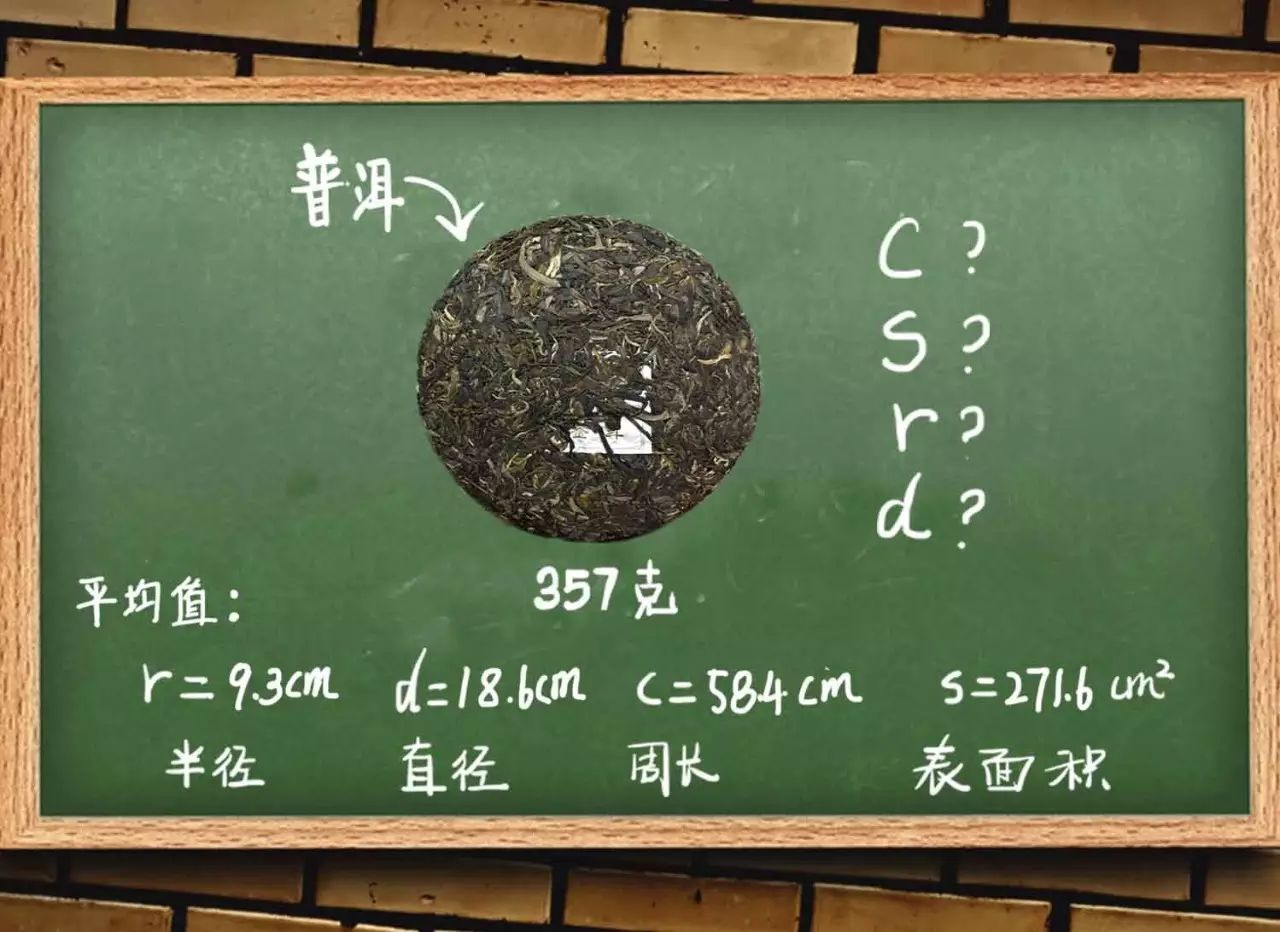 普洱
C?
S?
r?
d?
357克
平均值:
r=9.3cm d=18.6cm C=58.4cm S=271.6cm²
半径 直径 周长 表面积